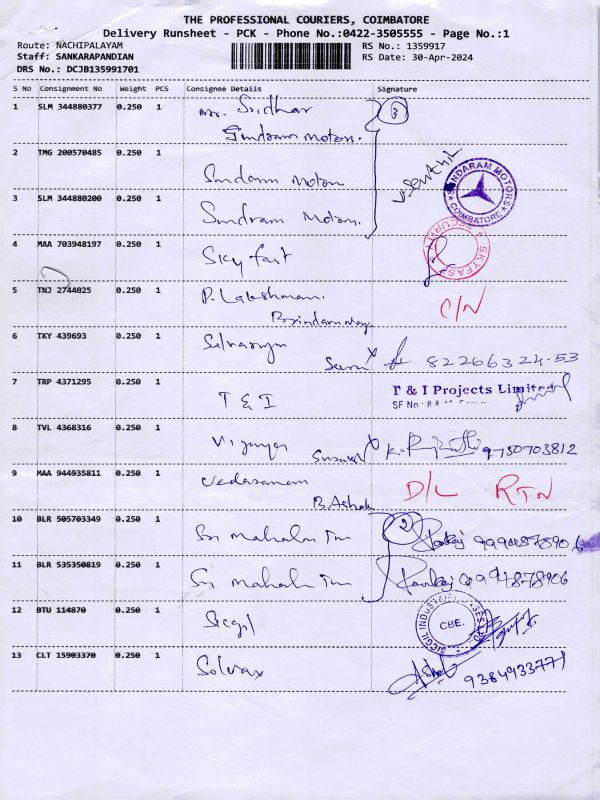 THE PROFESSIONAL COURIERS, COIMBATORE
Delivery Runsheet - PCK - Phone No.:0422-3505555 - Page No.:1
Route: NACHIPALAYAM
RS No.: 1359917
Staff: SANKARAPANDIAN
RS Date: 30-Apr-2024
DRS No.: DCJB135991701
S No Consignment No Weight PCS Consignee Details Signature
1 SLM 344880377 0.250 1 Mr. Sridhar
Sundram Motors. 3
2 TMG 200570485 0.250 1
Sundaram Motors
V. Senthil
SUNDARAM MOTORS
COIMBATORE
3 SLM 344880200 0.250 1
Sundram Motors.
4 MAA 703948197 0.250 1
Sky fast
SKYFAS SECURIT
5 TNJ 2744025 0.250 1 P. Lakshmanan. C/N
6 TKY 439693 0.250 1 Selvarajan
8226632453
7 TRP 4371295 0.250 1
T & I
T & I Projects Limited
SF No
8 TVL 4368316 0.250 1
Vijaya
9750703812
9 MAA 944935811 0.250 1 Vedasanam
B. Ashok
D/L RTN
10 BLR 505703349 0.250 1
Sri mahalaxmi 2 Pankaj 9994878906
11 BLR 535350819 0.250 1
Sri mahalaxmi Pankaj 9994878906
12 BTU 114870 0.250 1
Siegil
SIEGIL INDUSTRI
CBE.
13 CLT 15903370 0.250 1
Solvax
Ashok
9384933771